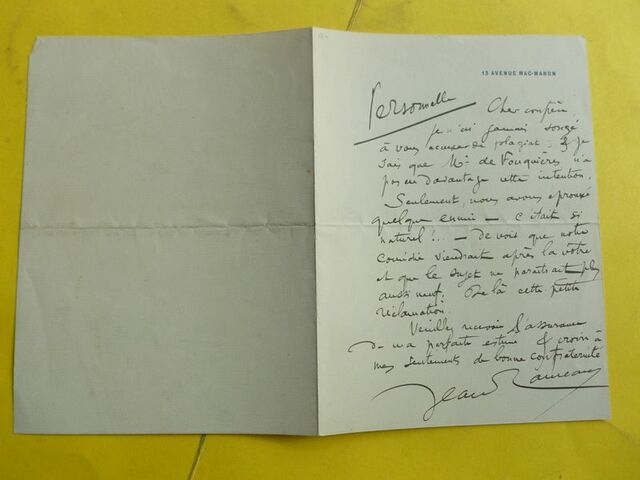 13 AVENUE MAC-MAHON
Personnelle
Cher confrère,
Je n'ai jamais songé
à vous accuser de plagiat, & je
sais que Mr de Fouquières n'a
pas eu davantage cette intention.
Seulement, nous avons éprouvé
quelque ennui — c'était si
naturel!.. — de voir que notre
comédie viendrait après la vôtre
et que le sujet ne paraîtrait plus
aussi neuf. De là cette petite
réclamation.
Veuillez recevoir l'assurance
de ma parfaite estime & croire à
mes sentiments de bonne confraternité
Jean Rameau